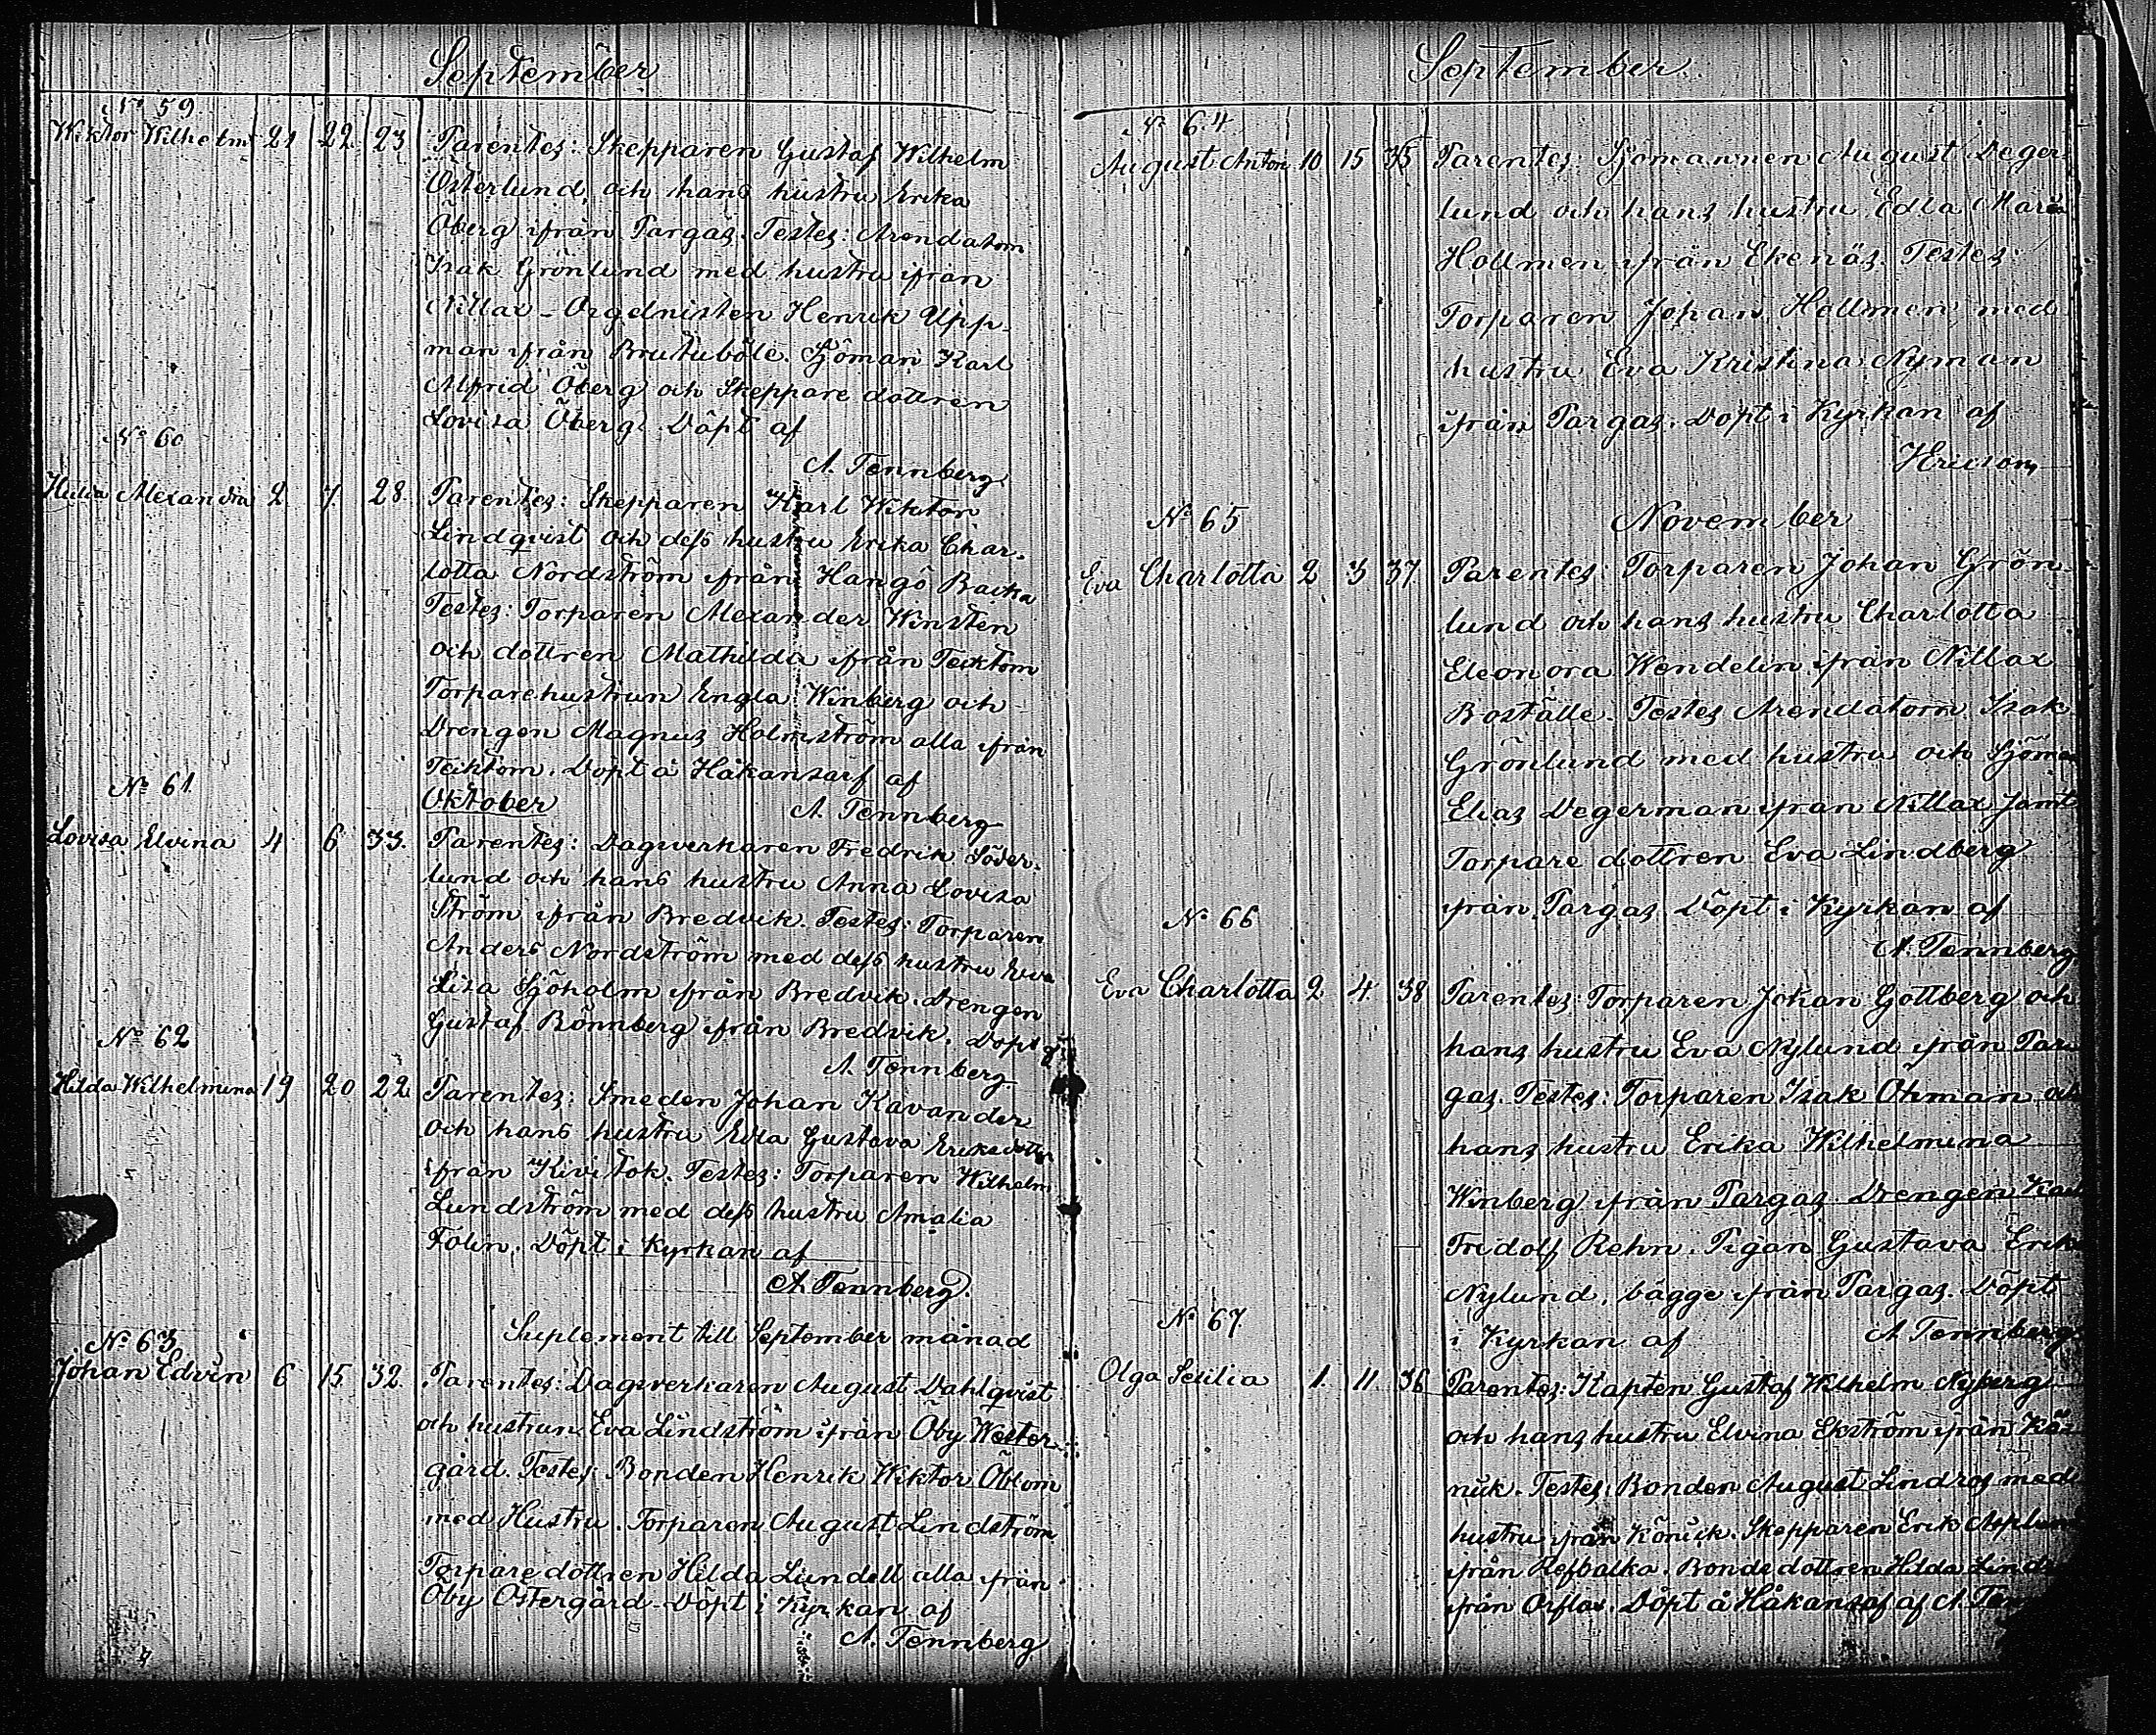 September
No 59.
Wiktor Wilhelm 21 22 23 Parentes: Skepparen Gustaf Wilhelm
Österlund, och hans hustru Erika
Öberg ifrån Pargas. Testes: Arendatorn
Isak Grönlund med hustru ifrån
Nillax - Orgelnisten Henrik Upp-
man ifrån Brutuböle. Sjöman Karl
Alfrid Öberg och Skeppare dottren
Lovisa Öberg. Döpt af
A. Tennberg
No 60
Hilda Alexandra 2 7. 28. Parentes: Skepparen Karl Wiktor
Lindqvist och dess hustru Erika Char-
lotta Nordström ifrån Hangö Backa
Testes: Torparen Alexander Winsten
och dottren Mathilda ifrån Tecktom
Torparehustrun Engla Winberg och
Drengen Magnus Holmström alla ifrån
Tecktom. Döpt å Håkansarf af
A. Tennberg
No 61
Oktober
Lovisa Elvina 4 6 33. Parentes: Dagsverkaren Fredrik Söder-
lund och hans hustru Anna Lovisa
Ström ifrån Bredvik. Testes: Torparen
Anders Nordström med dess hustru Eva
Lisa Sjöholm ifrån Bredvik. Drengen
Gustaf Rönnberg ifrån Bredvik. Döpt af
A. Tennberg
No 62
Hilda Wilhelmina 19 20 22 Parentes: Smeden Johan Kavander
och hans hustru Edla Gustava Eriksdotter
ifrån Kivitok. Testes: Torparen Wilhelm
Lundström med dess hustru Amalia
Folin. Döpt i Kyrkan af
A. Tennberg.
Suplement till September månad
No 63
Johan Edvin 6 15 32. Parentes: Dagsverkaren August Dahlqvist
och hustrun Eva Lindström ifrån Öby Wester-
gård. Testes Bonden Henrik Wiktor Öblom
med Hustru. Torparen August Lindström
Torpare dottren Hilda Lundell alla ifrån
Öby Östergård. Döpt i Kyrkan af
A. Tennberg
September.
No 64
August Anton 10 15 35 Parentes: Sjömannen August Deger-
lund och hans hustru Edla Maria
Hollmen ifrån Ekenäs. Testes:
Torparen Johan Hollmen med
hustru Eva Kristina Nyman
ifrån Pargas. Döpt i Kyrkan af
HEricson
No 65
November
Eva Charlotta 2 3 37 Parentes: Torparen Johan Grön-
lund och hans hustru Charlotta
Eleonora Wendelin ifrån Nillax
Boställe. Testes Arendatorn Isak
Grönlund med hustru och Sjöman
Elias Degerman ifrån Nillax Jämt
Torpare dottren Eva Lindberg
ifrån Pargas Döpt i Kyrkan af
A. Tennberg
No 66
Eva Charlotta 2 4. 38 Parentes: Torparen Johan Gottberg och
hans hustru Eva Nylund ifrån Par-
gas. Testes: Torparen Isak Öhman och
hans hustru Erika Wilhelmina
Winberg ifrån Pargas. Drengen Karl
Fridolf Rehn. Pigan Gustava Erika
Nylund, bägge ifrån Pargas. Döpt
i Kyrkan af A. Tennberg
No 67
Olga Sesilia 1. 11. 36 Parentes: Kapten Gustaf Wilhelm Nyberg
och hans hustru Elvina Ekström ifrån Kö-
nick. Testes: Bonden August Lindros med
hustru ifrån Könick. Skepparen Erik Asplund
ifrån Refbacka. Bonde dottren Hilda
ifrån Orflax. Döpt å Håkansarf af A.